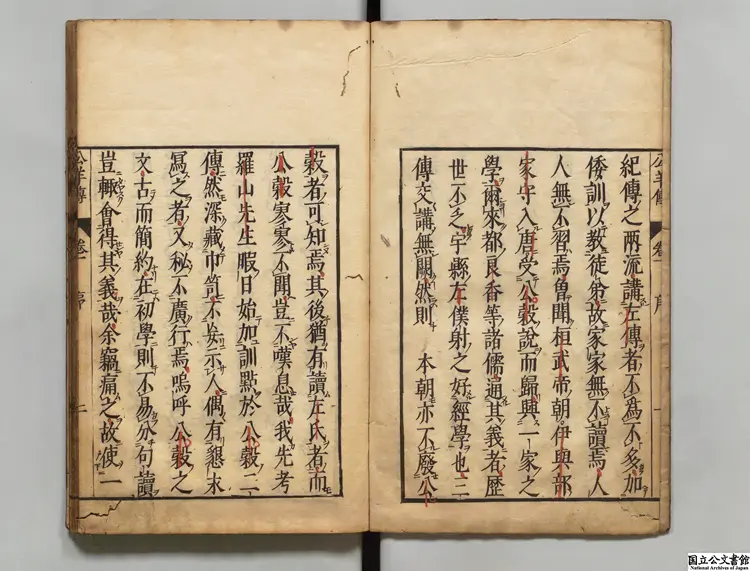 公羊傳 卷一 序 一
紀傳之兩流講左傳者不爲不多加
倭訓以教徒弟故家家無不讀焉人
人無不習焉曾聞桓武帝朝伊與部
家守入唐受公穀說而歸興一家之
學爾來都良香等諸儒通其義者歷
世不乏宇縣左僕射之好經學也三
傳交講無闕然則 本朝亦不廢公
穀者可知焉其後猶有讀左氏者而
公穀寥寥不聞豈不嘆息哉我先考
羅山先生暇日始加訓點於公穀二
傳然深藏巾笥不妄示人偶有懇求
寫之者又秘不廣行焉嗚呼公穀之
文古而簡約在初學則不易分句讀
豈輙會得其義哉余竊痛之故使二
公羊傳 卷一 序 二
国立公文書館
National Archives of Japan